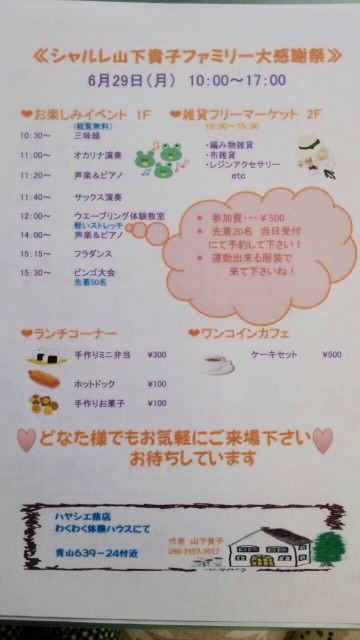 ≪シャルレ山下貴子ファミリー大感謝祭≫
6月29日(月) 10:00〜17:00
❤お楽しみイベント 1F
(観覧無料)
10:30〜 三味線
11:00〜 オカリナ演奏
11:20〜 声楽&ピアノ
11:40〜 サックス演奏
12:00〜 ウエーブリング体験教室
軽いストレッチ
14:00〜 声楽&ピアノ
15:15〜 フラダンス
15:30〜 ビンゴ大会
先着50名
❤雑貨フリーマーケット 2F
10:00〜15:00
・編み物雑貨
・布雑貨
・レジンアクセサリー
etc
* 参加費・・・¥500
* 先着20名 当日受付
にて予約して下さい!
* 運動出来る服装で
来て下さいね!
❤ランチコーナー
手作りミニ弁当 ¥300
ホットドック ¥100
手作りお菓子 ¥100
❤ワンコインカフェ
ケーキセット ¥500
どなた様でもお気軽にご来場下さい
お待ちしています
ハヤシ工務店
わくわく体験ハウスにて
青山639−24付近
代表 山下貴子
090-7357-7017